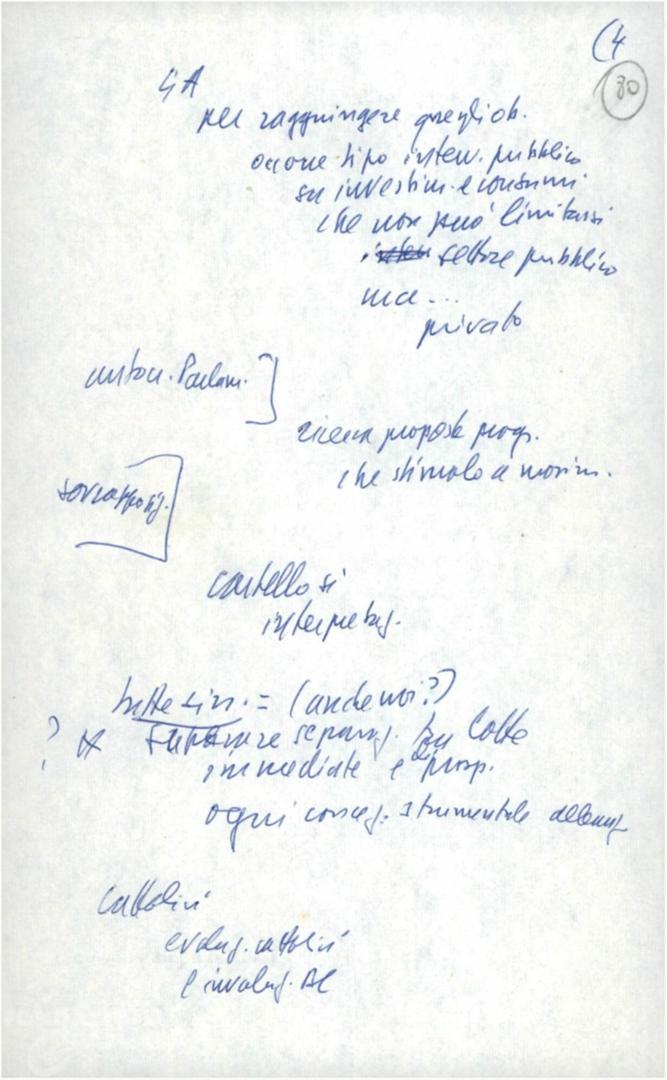 (4
80
4A
per raggiungere quegli ob.
occorre tipo interv. pubblico
su investim. e consumi
che non può limitarsi
settore pubblico
ma ...
privato
auton. Parlam.
ricerca proposte progr.
che stimolo a movim.
sovrapposiz.
cartello si
interpretaz.
tutte sin. = (anche noi?)
? superare separaz. tra lotte
immediate e prosp.
ogni concez. strumentale
cattolici
evoluz. cattolici
e involuz.